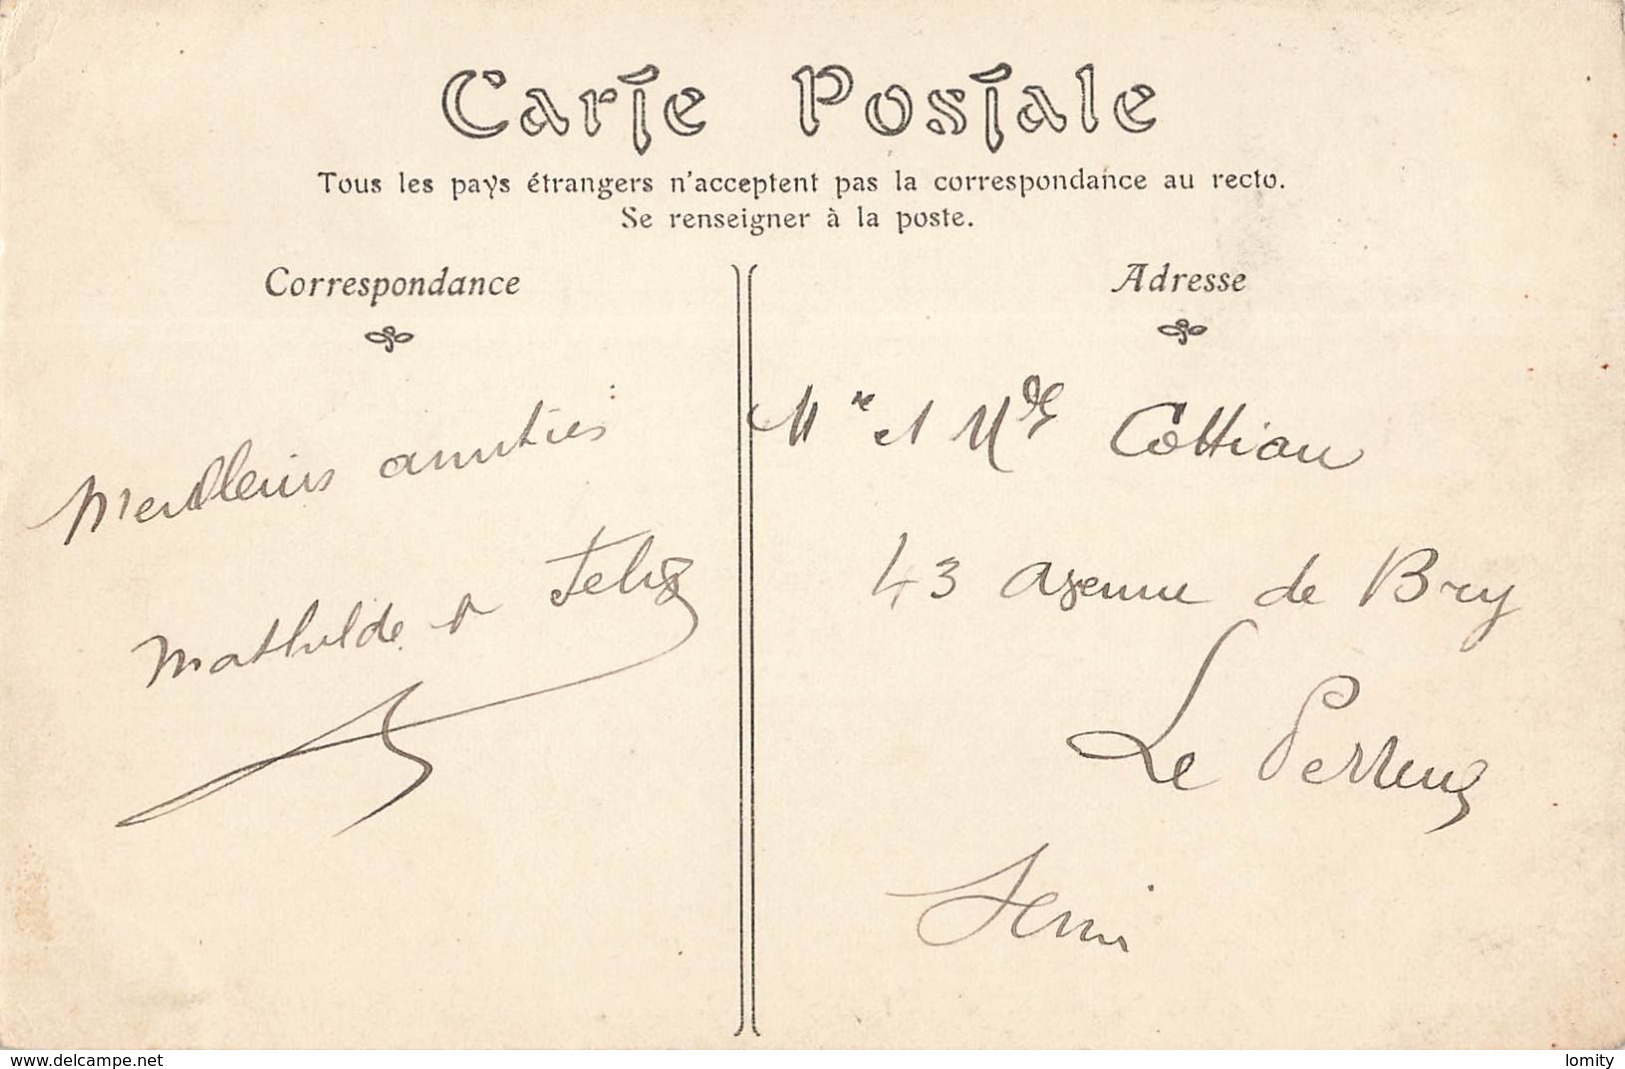 Carte Postale
Tous les pays étrangers n'acceptent pas la correspondance au recto.
Se renseigner à la poste.
Correspondance
Meilleurs amitiés
Mathilde et Felix
Adresse
Mr et Mde Cottiau
43 avenue de Bry
Le Perreux
Seine
www.delcampe.net
lomity